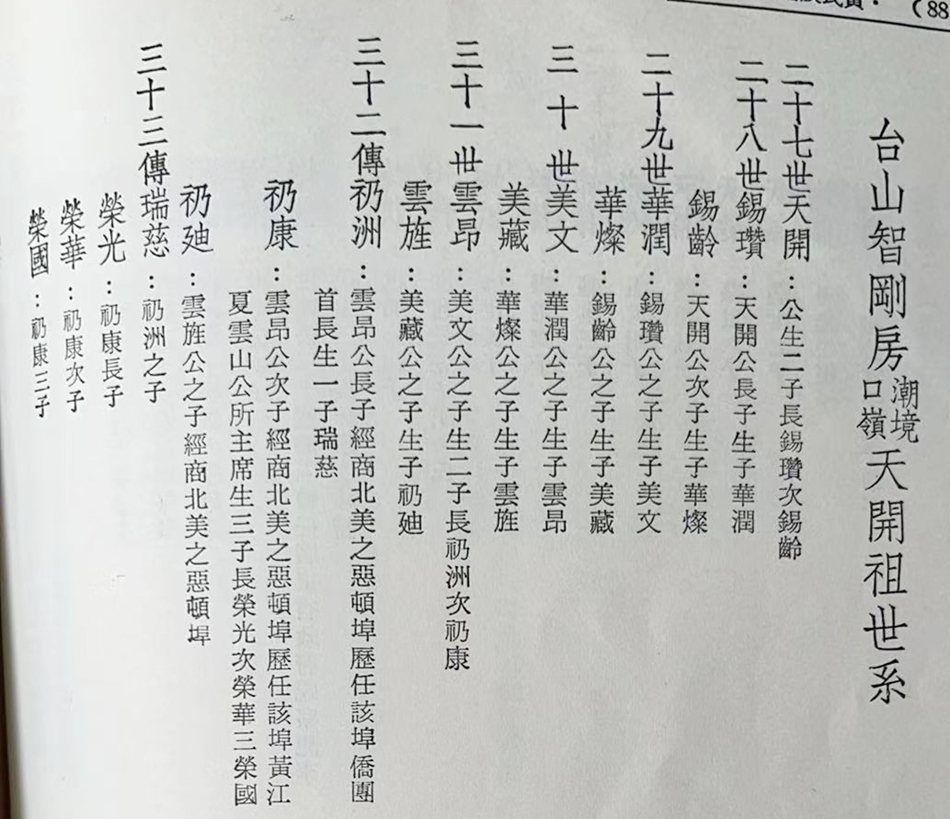 (88
台山智剛房潮境口嶺天開祖世系
二十七世天開：公生二子長錫瓚次錫齡
二十八世錫瓚：天開公長子生子華潤
錫齡：天開公次子生子華燦
二十九世華潤：錫瓚公之子生子美文
華燦：錫齡公之子生子美藏
三十世美文：華潤公之子生子雲昂
美藏：華燦公之子生子雲旌
三十一世雲昂：美文公之子生二子長礽洲次礽康
雲旌：美藏公之子生子礽廸
三十二傳礽洲：雲昂公長子經商北美之惡頓埠歷任該埠僑團
首長生一子瑞慈
礽康：雲昂公次子經商北美之惡頓埠歷任該埠黃江
夏雲山公所主席生三子長榮光次榮華三榮國
礽廸：雲旌公之子經商北美之惡頓埠
三十三傳瑞慈：礽洲之子
榮光：礽康長子
榮華：礽康次子
榮國：礽康三子